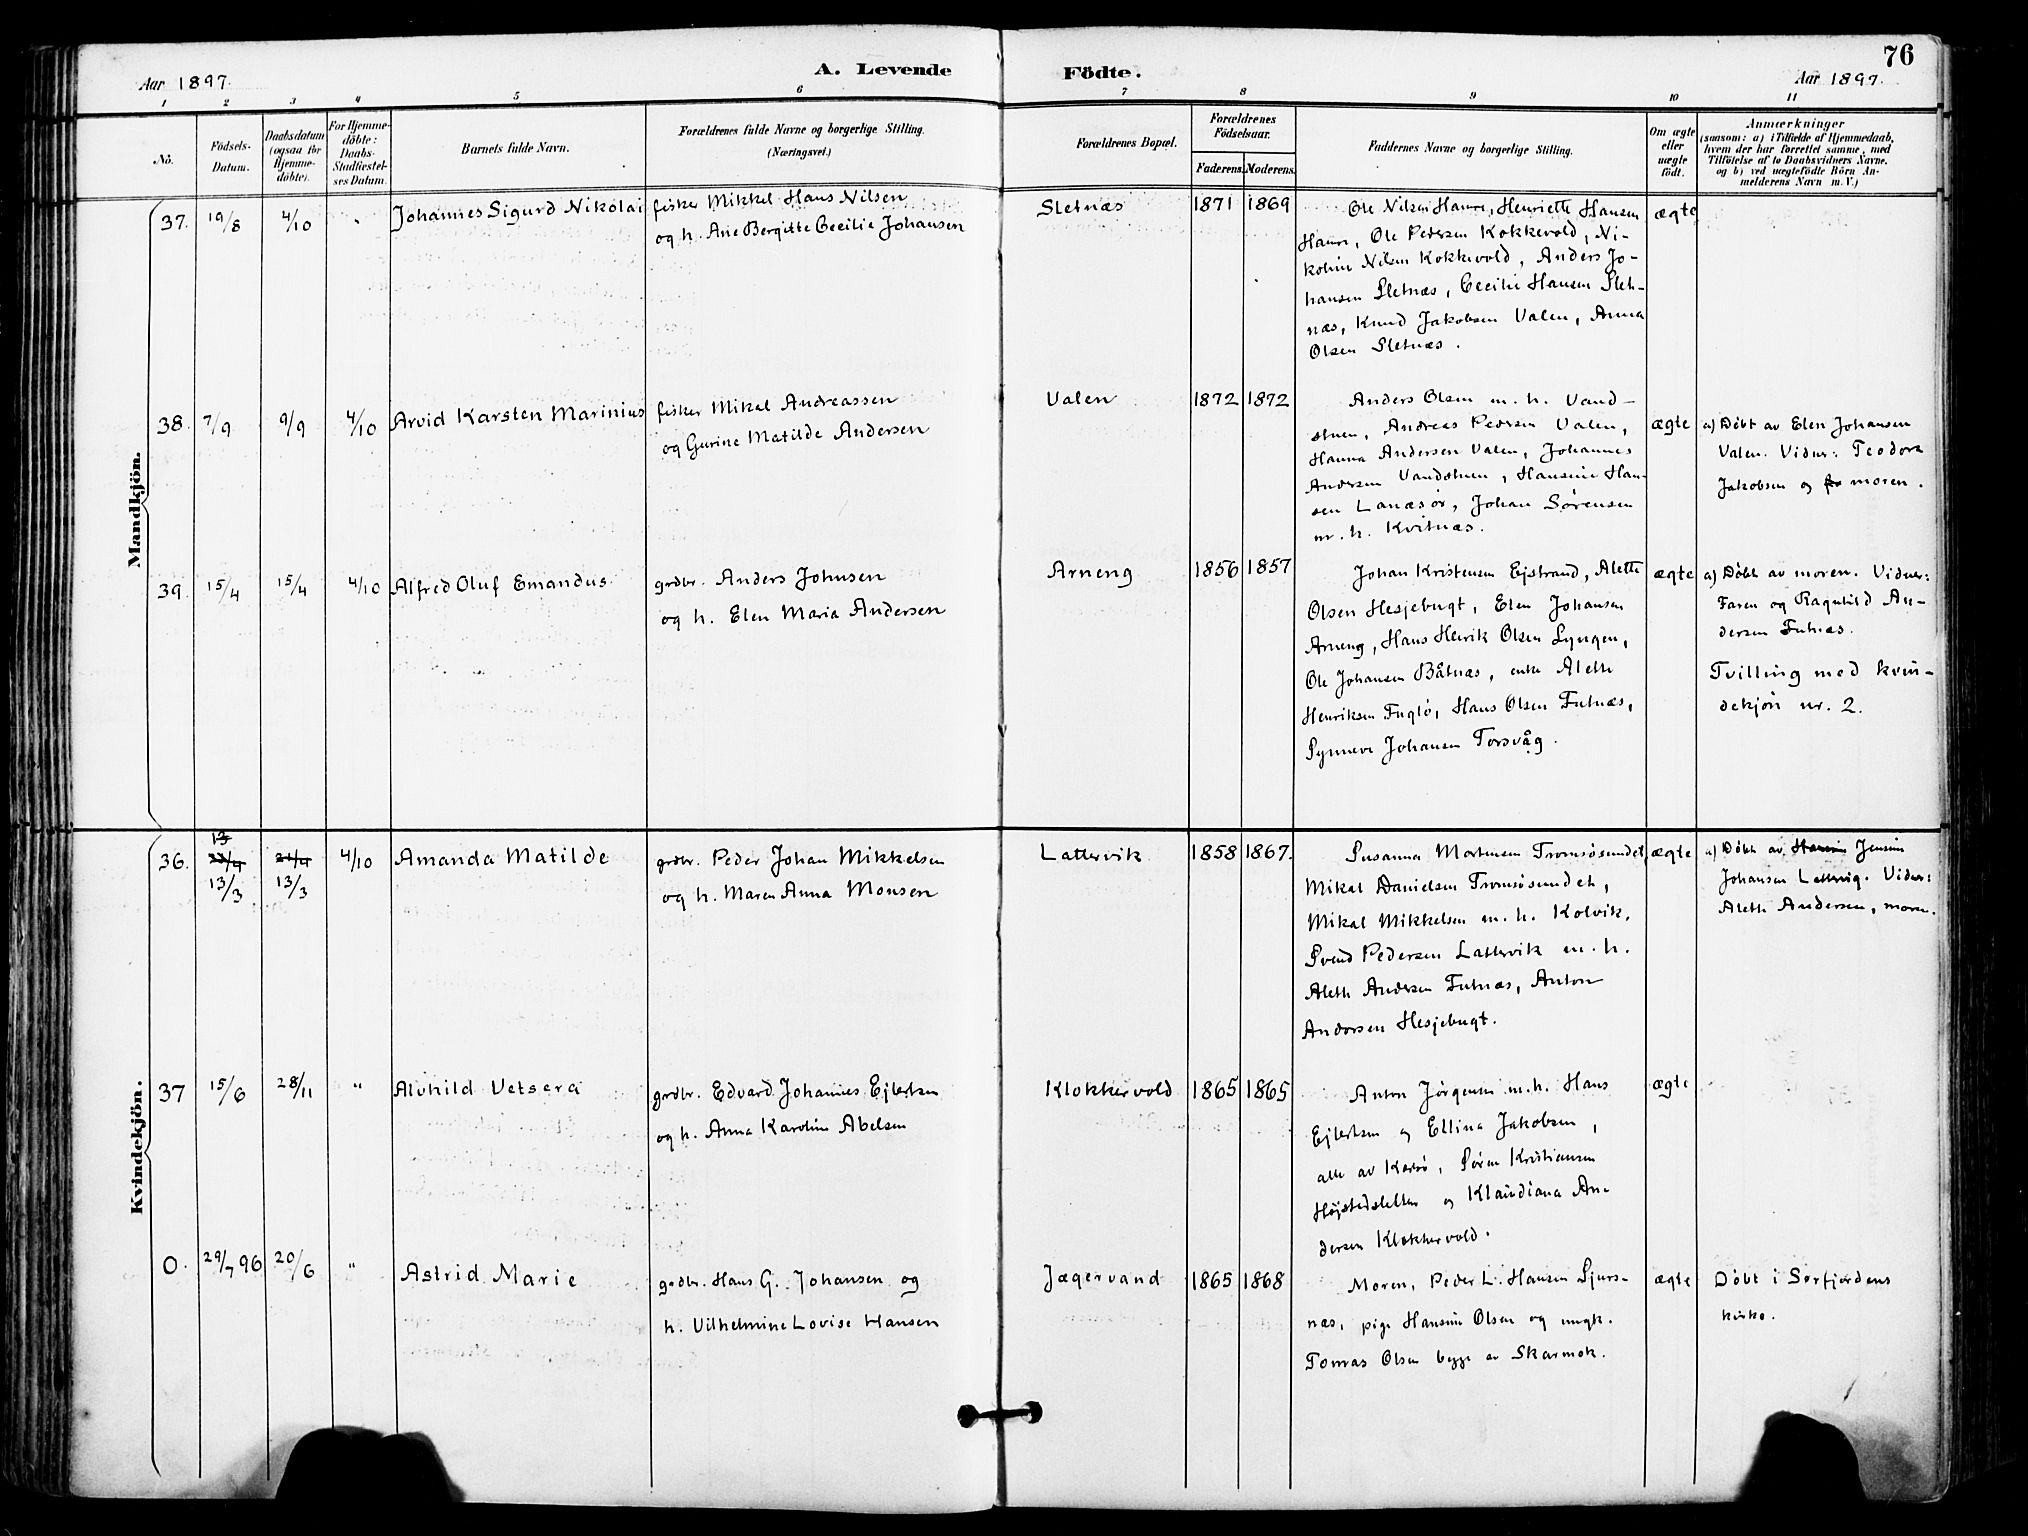 76
Aar 1897.
A. Levende Födte.
Aar 1897.
1 2 3 4 5 6 7 8 9 10 11
No.
Födsels-
Datum.
Daabsdatum
(ogsaa for
Hjemme-
döbte).
For Hjemme-
döbte:
Daabs-
Stadfæstel-
ses Datum.
Barnets fulde Navn.
Forældrenes fulde Navne og borgerlige Stilling.
(Næringsvei.)
Forældrenes Bopæl.
Forældrenes
Födselsaar.
Faderens. Moderens.
Faddernes Navne og borgerlige Stilling.
Om ægte
eller
uægte
födt.
Anmærkninger
(saasom: a) i Tilfælde af Hjemmedaab,
hvem der har forrettet samme, med
Tilföielse af to Daabsvidners Navne,
og b) ved uægtefödte Börn An-
melderens Navn m. V.)
Mandkjön.
37. 19/8 4/10 " Johannes Sigurd Nikolai
fisker Mikkel Hans Nilsen
og h. Ane Bergitte Cecilie Johansen
Sletnæs 1871 1869
Ole Nilsen Hamre, Henriette Hansen
Hamre, Ole Pedersen Kokkevold, Ni-
koline Nilsen Kokkevold, Anders Jo-
hansen Sletnæs, Cecilie Hansen Slet-
næs, Knud Jakobsen Valen, Anna
Olsen Sletnæs.
ægte
38. 7/9 9/9 4/10 Arvid Karsten Marinius
fisker Mikal Andreassen
og Gurine Matilde Andersen
Valen 1872 1872
Anders Olsen m. h. Vand-
stuen, Andreas Pedersen Valen,
Hanna Andersen Valen, Johannes
Andersen Vandstuen, Hansine Han-
sen Lanæsör, Johan Sørensen
m. h. Kvitnæs.
ægte
a) Döbt av Elen Johansen
Valen. Vidner: Teodora
Jakobsen og moren.
39. 15/4 15/4 4/10 Alfred Oluf Emandus.
grdbr. Anders Johnsen
og h. Elen Maria Andersen
Arneng 1856 1857
Johan Kristensen Ejstrand, Alette
Olsen Hesjebugt, Elen Johansen
Arneng, Hans Henrik Olsen Lyngen,
Ole Johansen Båtnæs, enke Alette
Henriksen Fuglö, Hans Olsen Futnæs,
Synneve Johansen Torsvåg.
ægte
a) Döbt av moren. Vidner:
Faren og Ragnhild An-
dersen Futnæs.
Tvilling med kvin-
dekjön nr. 2.
Kvindekjön.
36. 13/3 13/3 4/10 Amanda Matilde
grdbr. Peder Johan Mikkelsen
og h. Maren Anna Monsen
Lattervik 1858 1867.
Susanna Mortensen Tromsösundet,
Mikal Danielsen Tromsösundet,
Mikal Mikkelsen m. h. Kolvik,
Svend Pedersen Lattervik m. h.
Aleth Andersen Futnæs, Anton
Andersen Hesjebugt.
ægte
a) Döbt av Jensine
Johansen Lattervig. Vidner:
Aleth Andersen, moren.
37 15/6 28/11 " Alvhild Vetsera
grdbr. Edvard Johannes Ejlertsen
og h. Anna Karoline Abelsen
Klokkervold 1865 1865
Anton Jørgensen m. h. Hans
Ejlertsen og Ellina Jakobsen,
alle av Karlsö, Sören Kristiansen
Höjstedsletten og Klaudiana An-
dersen Klokkervold.
ægte
0. 29/7 96 20/6 " Astrid Marie
grdbr. Hans G. Johansen og
h. Vilhelmine Lovise Hansen
Jægervand 1865 1868
Moren, Peder L. Hansen Sjurs-
næs, pige Hansine Olsen og ungk.
Tomas Olsen begge av Skarmok.
ægte
Döbt i Sørfjordens
kirke.